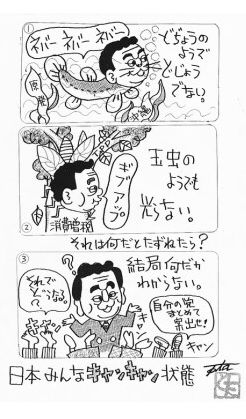 ①
ネバー ネバー ネバー
どぢょうの
ようで
どじょう
でない。
原発
②
ギブアップ
玉虫の
ようでも
光らない。
消費増税
それは何だとたずねたら?
③
?
結局何だか
わからない。
それで
どうなる?
自分の党
まとめて
票出た!
キャン
キャン
日本みんなキャンキャン状態